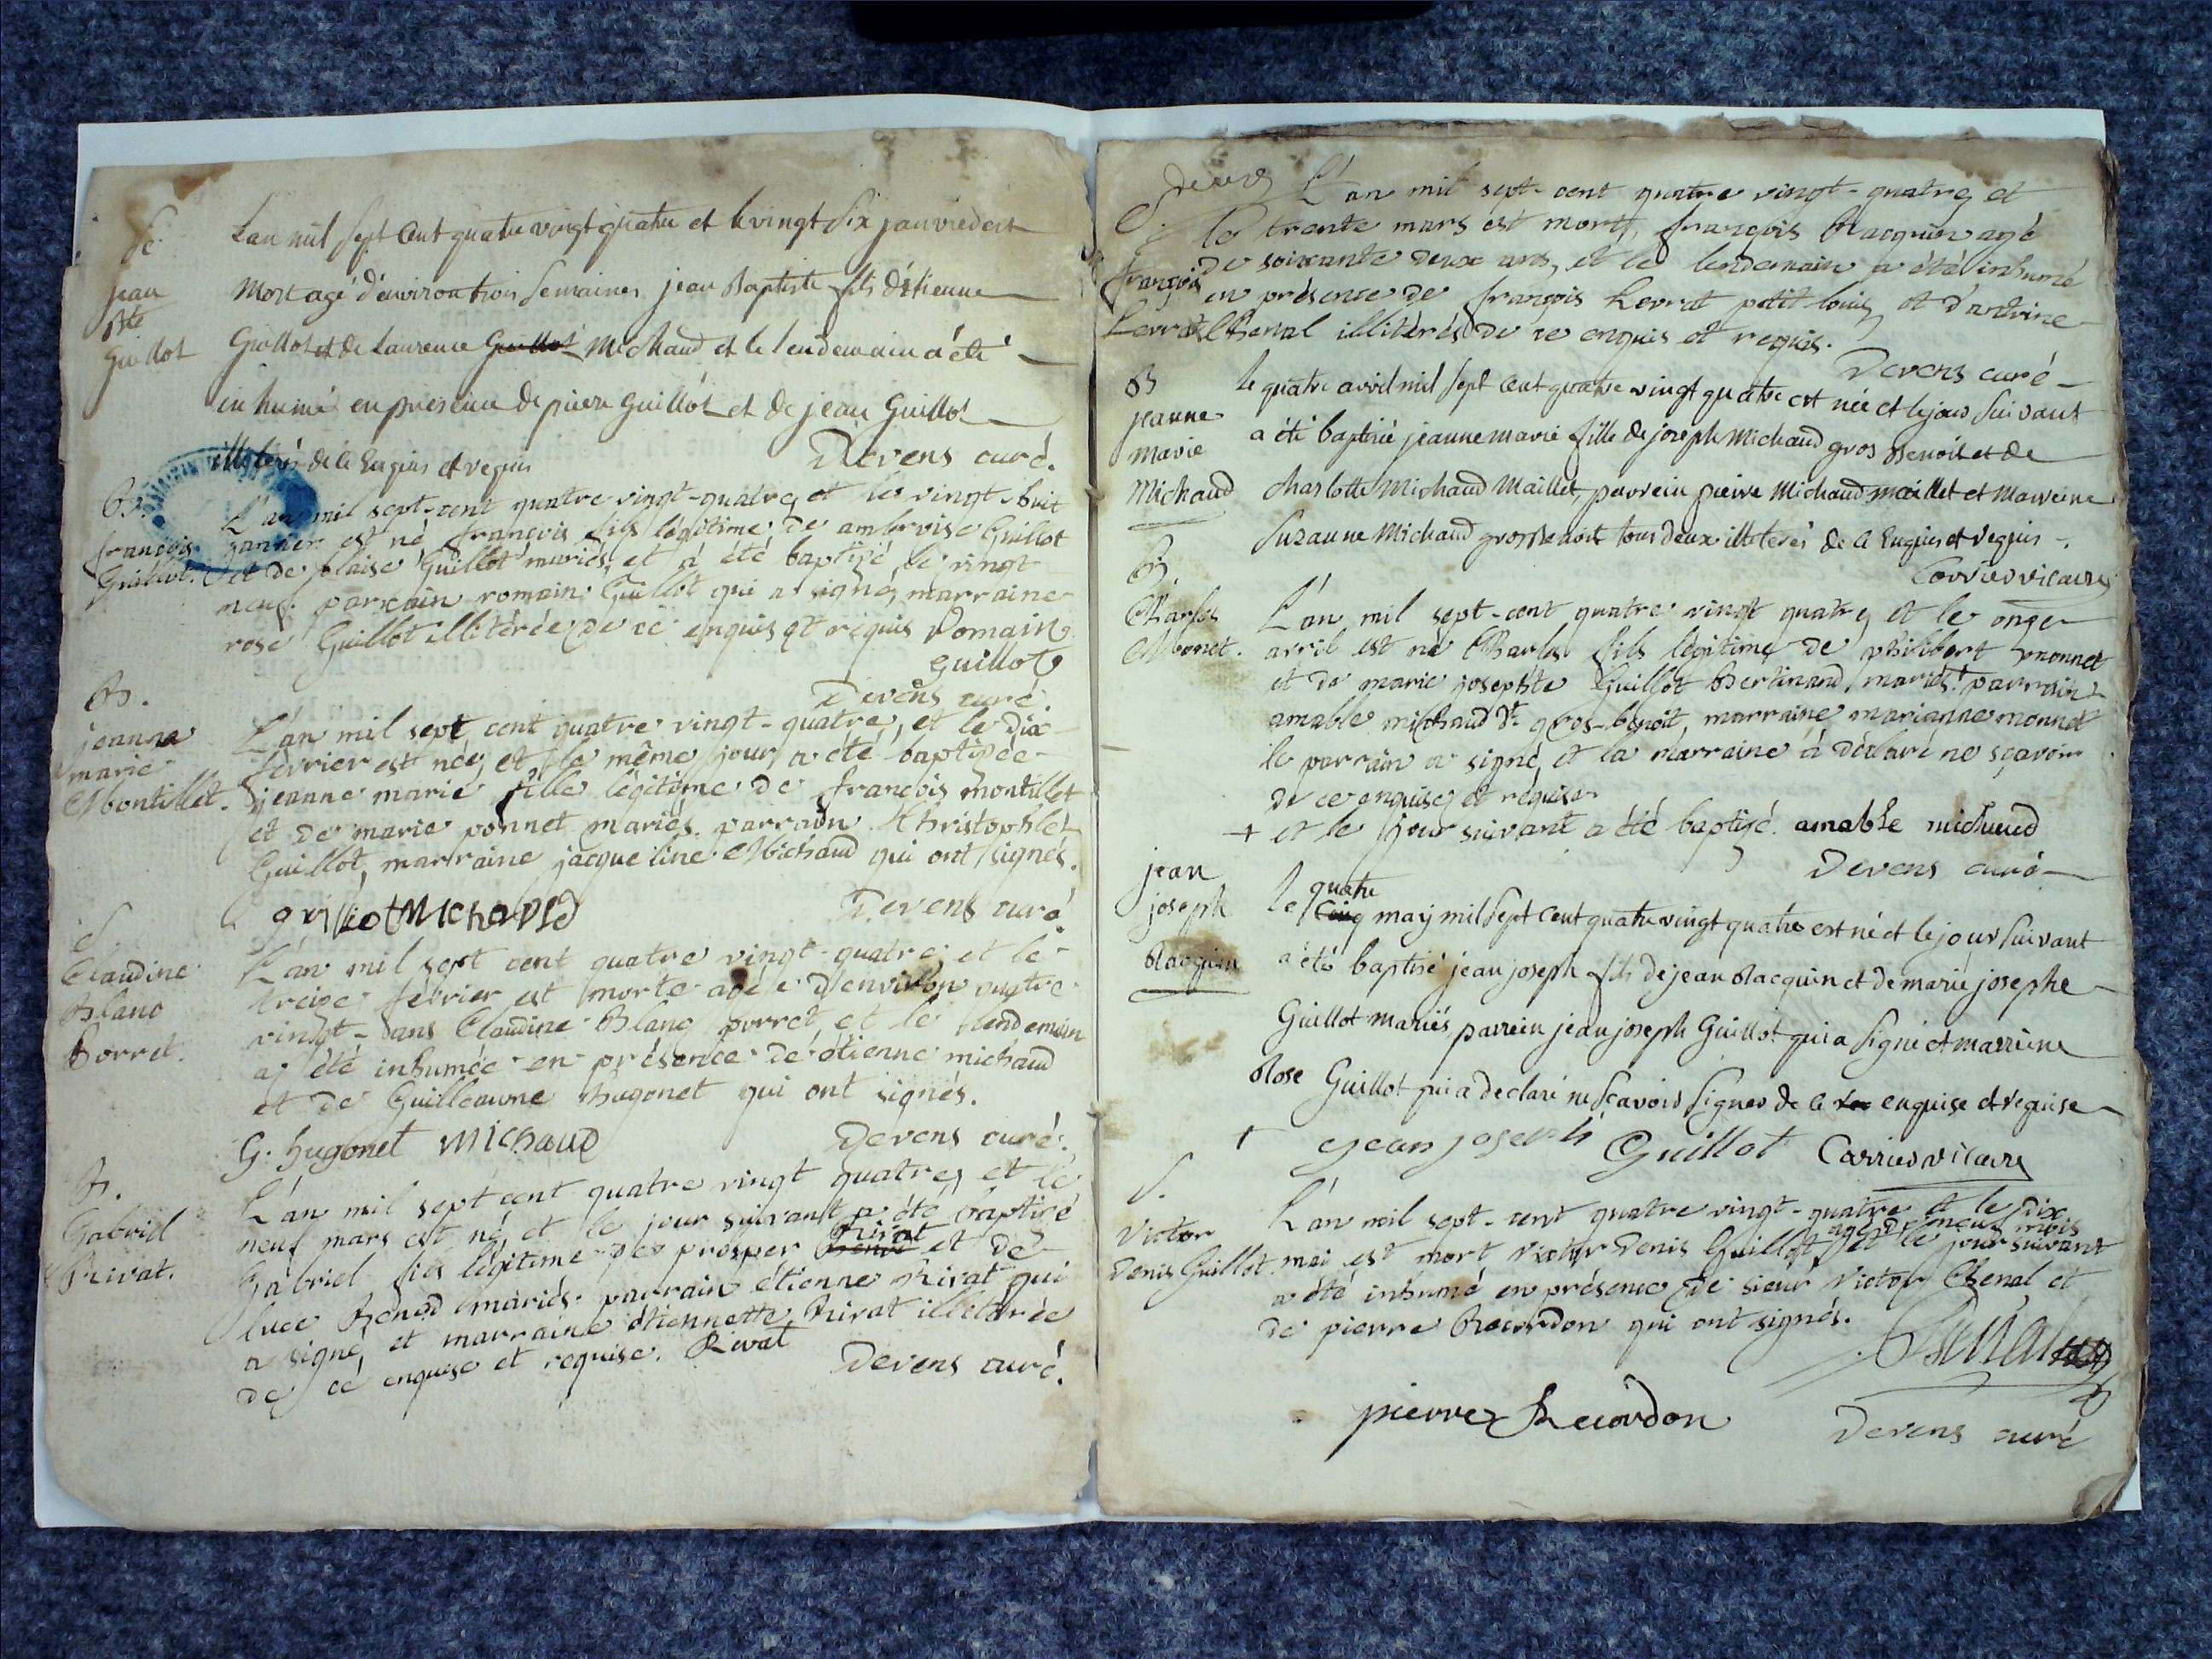 Se.
jean
Bte
Guillot
Lan mil sept Cent quatre vingt quatre et le vingt Six janvier est
Mort agé d'environ trois Semaines jean Baptiste fils d'étienne
Guillot et de Laurence Guillot Michaud et le lendemain a été
inhumé en presence de pierre Guillot et de jean Guillot
illiterés de ce Enquis et requis
Devens curé.
B.
françois
Guillot.
L'an mil sept-cent quatre vingt-quatre, et le vingt huit
janvier est né françois fils légitime de ambroise Guillot
et de blaise Guillot mariés, et a été baptisé le vingt
neuf. parrain romain Guillot qui a signé, marraine
rose Guillot illitérée de ce enquis et requis Romain
guillot
Devens curé.
B.
jeanne
marie
Montillet.
L'an mil sept cent quatre vingt-quatre, et le dix
février est née, et le même jour a été baptisée
jeanne marie fille légitime de françois montillet
et de marie ponnet mariés. parrain Christophle
Guillot, marraine jacqueline Michaud qui ont signés.
gvillot MichaVld
Devens curé
S.
Claudine
Blanc
Borret.
L'an mil sept cent quatre vingt-quatre, et le
treize février est morte agée d'environ quatre
vingt-ans Claudine Blanc porret, et le lendemain
a été inhumée en présence de étienne michaud
et de Guilleaume hugonet qui ont signés.
G. hugonet Michaud
Devens curé.
B.
Gabriel
Rivat.
L'an mil sept cent quatre vingt quatre, et le
neuf mars est né, et le jour suivant a été baptisé
Rivat
Gabriel fils légitime de prosper et de
luce Benod mariés. parrain étienne Rivat qui
a signé, et marraine étiennette Rivat illetérée
de ce enquise et requise. Rivat
Devens curé.
deux
S.
françois
Lerrat
L'an mil sept-cent quatre vingt-quatre, et
le trente mars est mort, françois Racquin agé
de soixante deux ans, et le lendemain a été inhumé
en présence de françois Lerrat petit louis, et d'antoine
Chenal illitérés de ce enquis et requis.
Devens curé
B
jeanne
marie
Michaud
le quatre avril mil sept Cent quatre vingt quatre est née et le jour suivant
a été baptisée jeanne marie fille de joseph Michaud gros Benoit et de
charlotte Michaud Maillet, parrein pierre Michaud maillet et Marreine
Suzanne Michaud gros Benoit tous deux illiterés de ce Enquis et requis.
Carrier vicaire
B.
Charles
Monet.
L'an mil sept-cent quatre vingt quatre, et le onze
avril est né Charles fils légitime de philibert monnet
et de marie josephte Guillot Bertinand, mariés.+ parrain
amable michaud dt. gros-benoit, marraine marianne monnet
le parrain a signé, et la marraine a déclaré ne sçavoir
de ce enquise, et requise
+ et le jour suivant a été baptisé. amable michaud
Devens curé
jean
joseph
Racquin
quatre
le Cinq may mil sept Cent quatre vingt quatre est né et le jour suivant
a été baptisé jean joseph fils de jean Racquin et de marie josephe
Guillot mariés, parrein jean joseph Guillot qui a signé et marreine
Rose Guillot qui a declaré ne Scavoir signer de ce enquise et requise
+ jean joseph Guillot Carrier vicaire
S.
Victor
Denis Guillot
L'an mil sept-cent quatre vingt-quatre et le dix
agé de neuf mois
mai est mort, victor Denis Guillot, et le jour suivant
a été inhumé en présence de sieur Victor Chenal et
de pierre Recordon qui ont signés.
Chenal
pierre Recordon
Devens curé